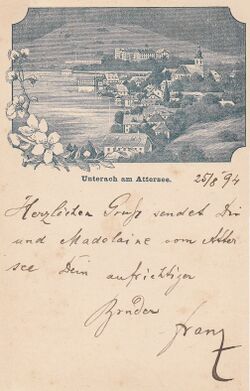 Unterach am Attersee.
25/8 94
Herzlichen Gruß sendet Dir
und Madolaine vom Atter
see Dein aufrichtiger
Bruder
Franz